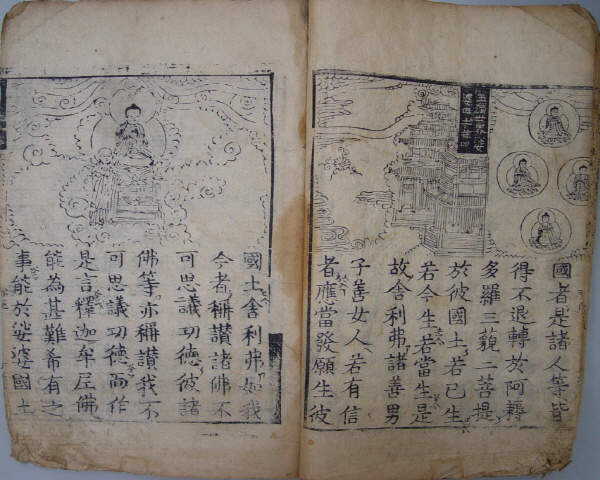 國者是諸人等皆
得不退轉於阿耨
多羅三藐三菩提
於彼國土若已生
若今生若當生是
故舍利弗諸善男
子善女人若有信
者應當發願生彼
國土舍利弗如我
今者稱讚諸佛不
可思議功德彼諸
佛等亦稱讚我不
可思議功德而作
是言釋迦牟尼佛
能為甚難希有之
事能於娑婆國土